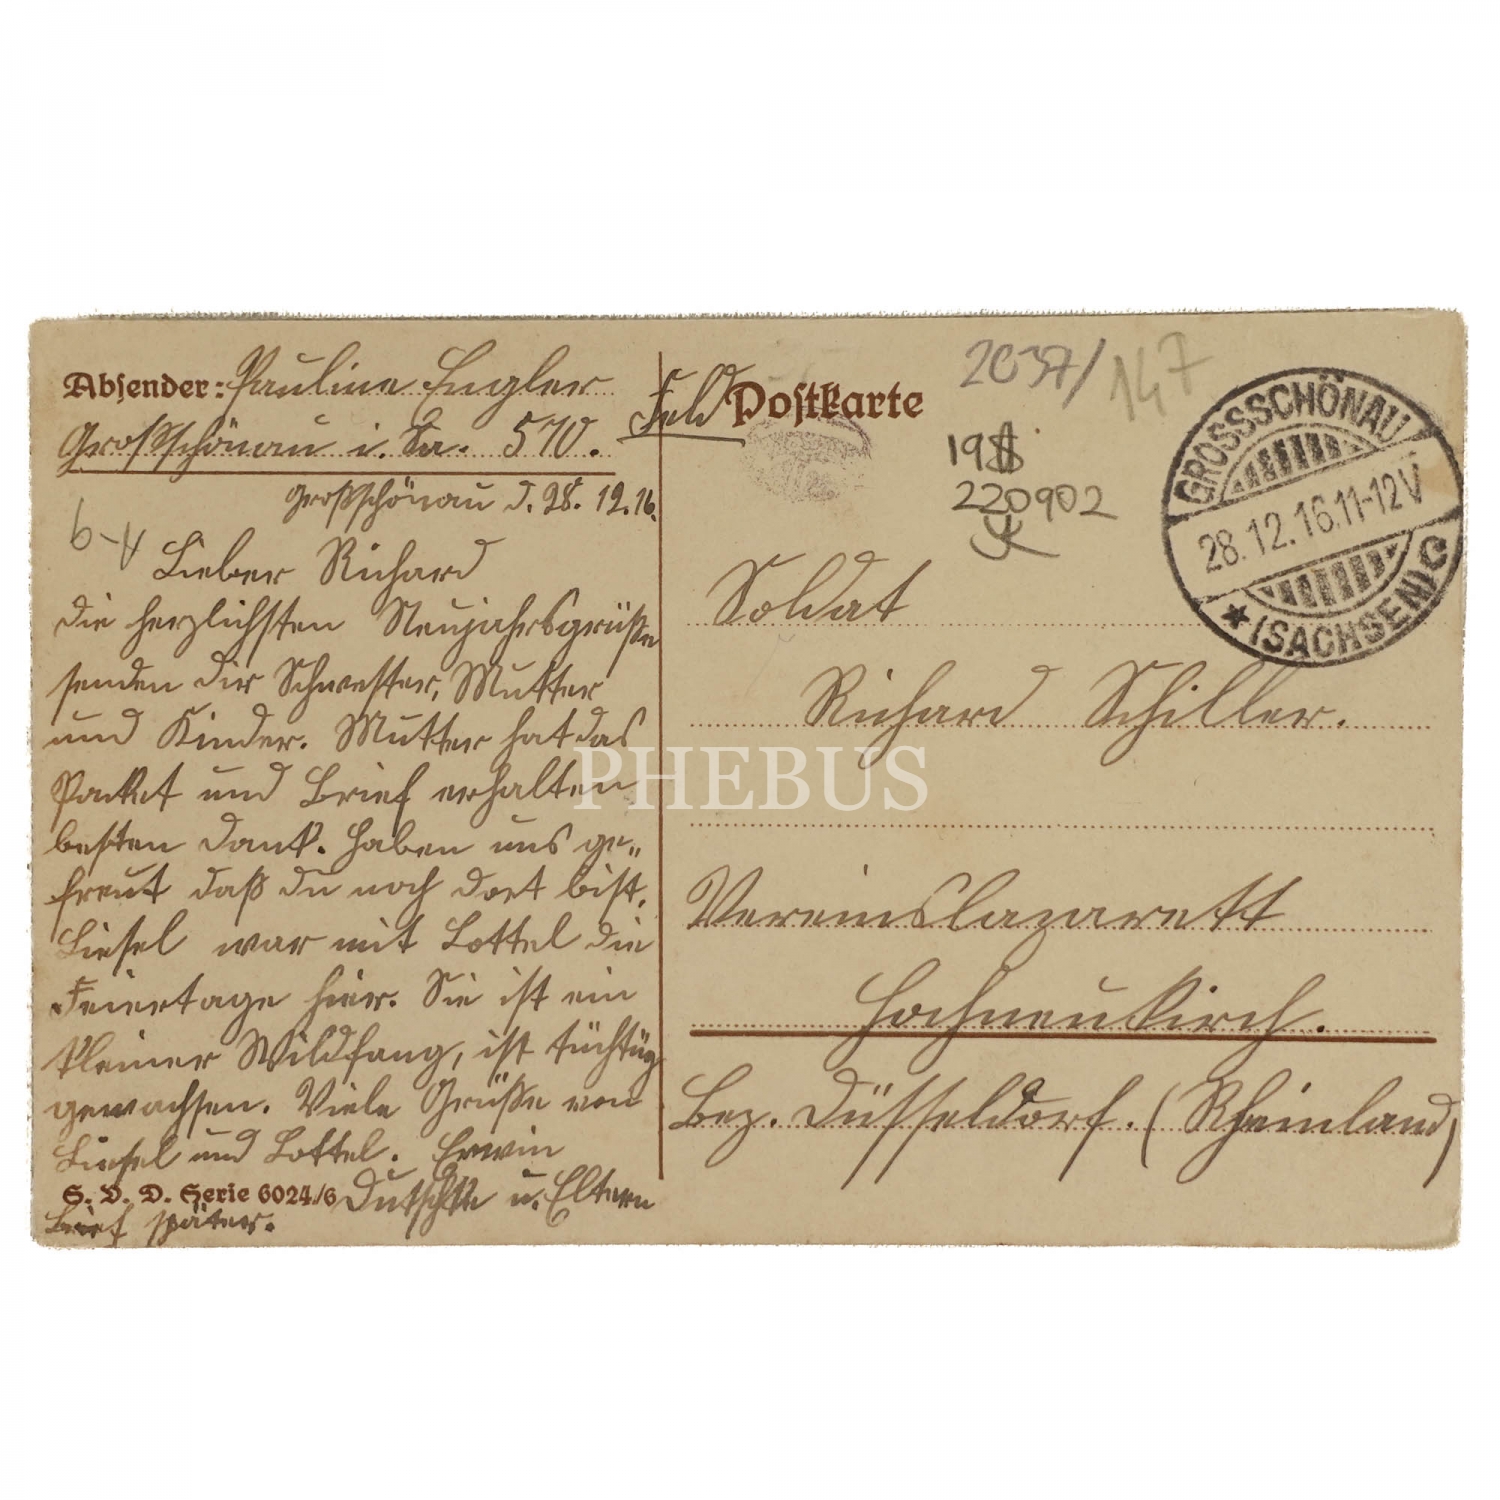 Absender: Pauline Engler
Großschönau i. Sa. 570.
Großschönau d. 28. 12. 16.
Lieber Richard
die herzlichsten Neujahrsgrüße
senden dir Schwester, Mutter
und Kinder. Mutter hat das
Packet und Brief erhalten
besten Dank. Haben uns ge„
freut daß du noch dort bist.
Liesel war mit Lottel die
Feiertage hier. Sie ist ein
kleiner Wildfang, ist tüchtig
gewachsen. Viele Grüße von
Liesel und Lottel. Erwin
S. V. D. Serie 6024/6 u. Eltern
Brief später.
Feld Postkarte
2037/147
19
220902
GROSSSCHÖNAU
28.12.16.11-12V
* (SACHSEN) C
Soldat
Richard Schiller.
PHEBUS
Vereinslazarett
Hochneukirch.
Bez. Düsseldorf. (Rheinland)